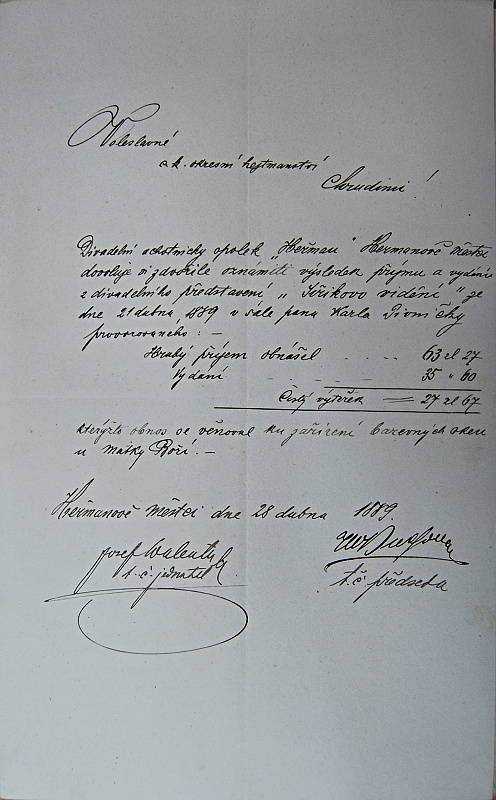 Veleslavné
c. k. okresní hejtmanství
Chrudimi!
Divadelní ochotnický spolek „Heřman" Heřmanově Městci
dovoluje si zdvořile oznámiti výsledek příjmu a vydání
z divadelního představení „Jiříkovo vidění" ze
dne 21 dubna 1889 v sále pana Karla
provozovaného: —
Hrubý příjem obnášel . . . . . 63 zl 27
Vydání 35 " 60
Čistý výtěžek = 27 zl 67
kterýžto obnos se věnoval ku zařízení barevných oken
u matky Boží. —
Heřmanově Městci dne 28 dubna 1889.
Josef
t. č. jednatel
t. č. předseda